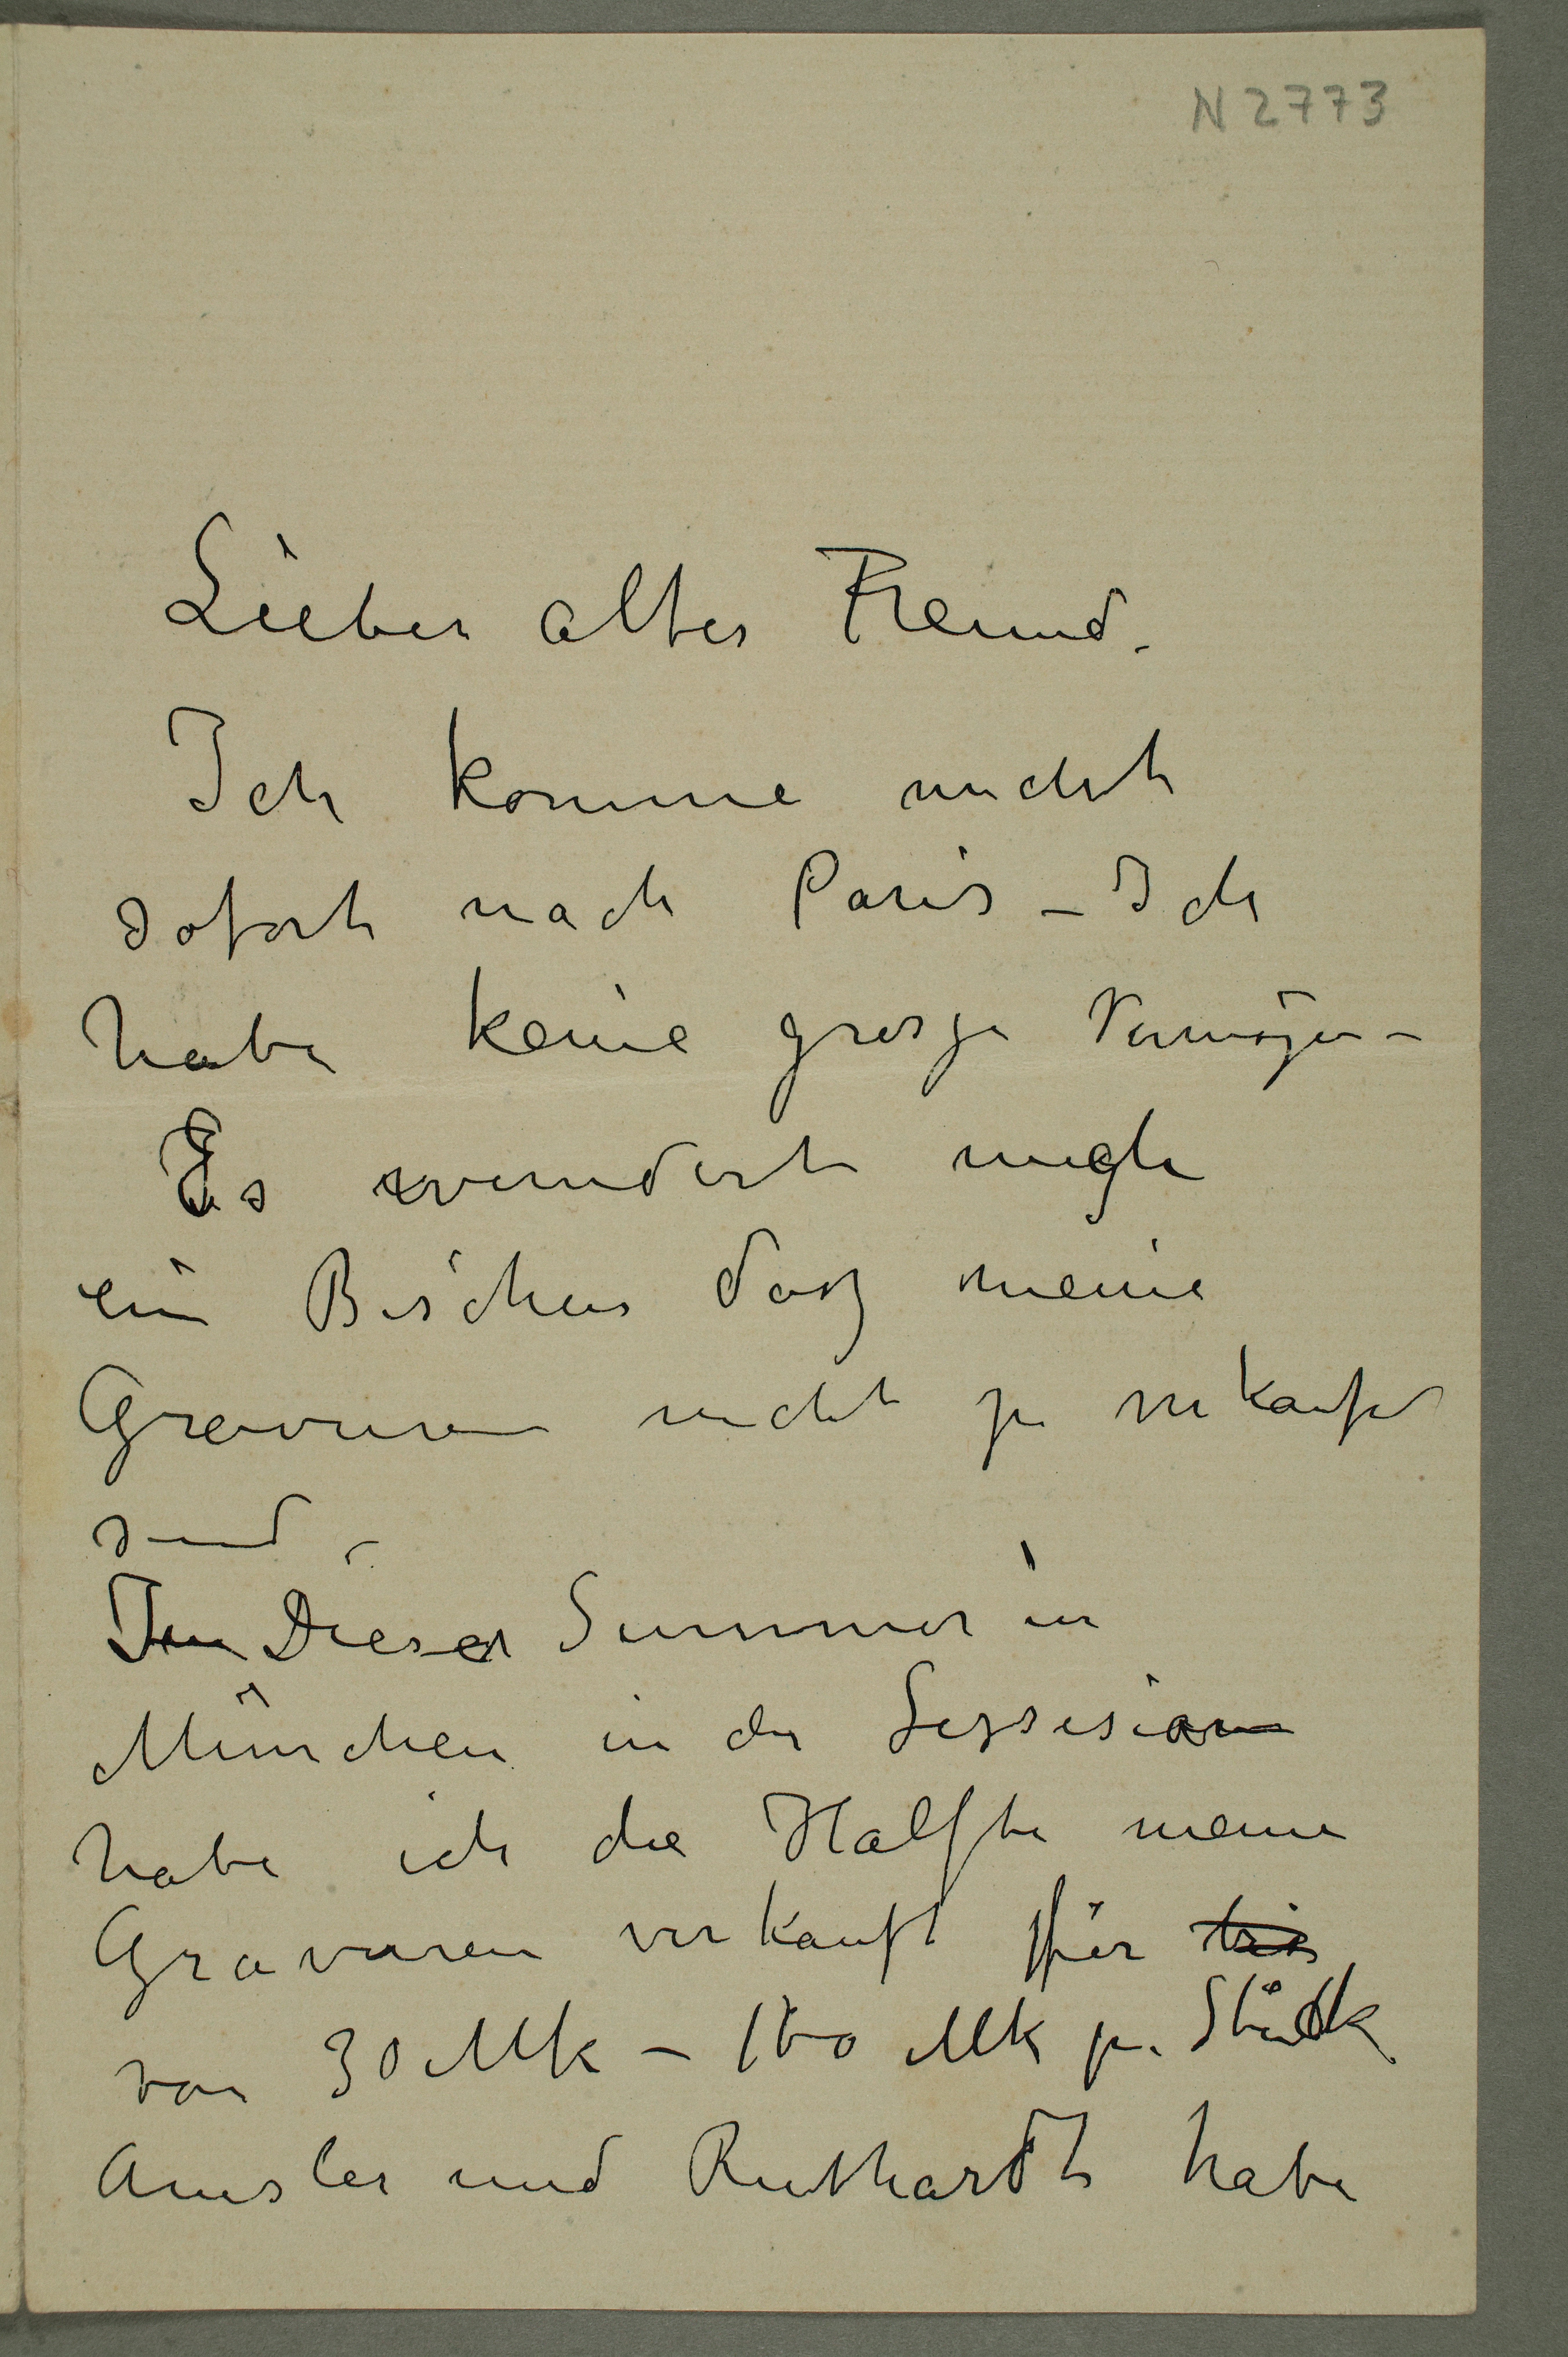 N 2773
Lieber alter Freund.
Ich komme nicht
sofort nach Paris – Ich
habe keine grosze Vermögen –
Es wundert mich
ein Bischen dasz meine
Gravuren nicht zu verkaufen
sind –
Im Dieser Summer in
München in der Sezsesion
habe ich die Hälfte meine
Gravuren verkauft für bis
von 30 Mk – 160 Mk pr. Stück
Amsler und Ruthardt habe